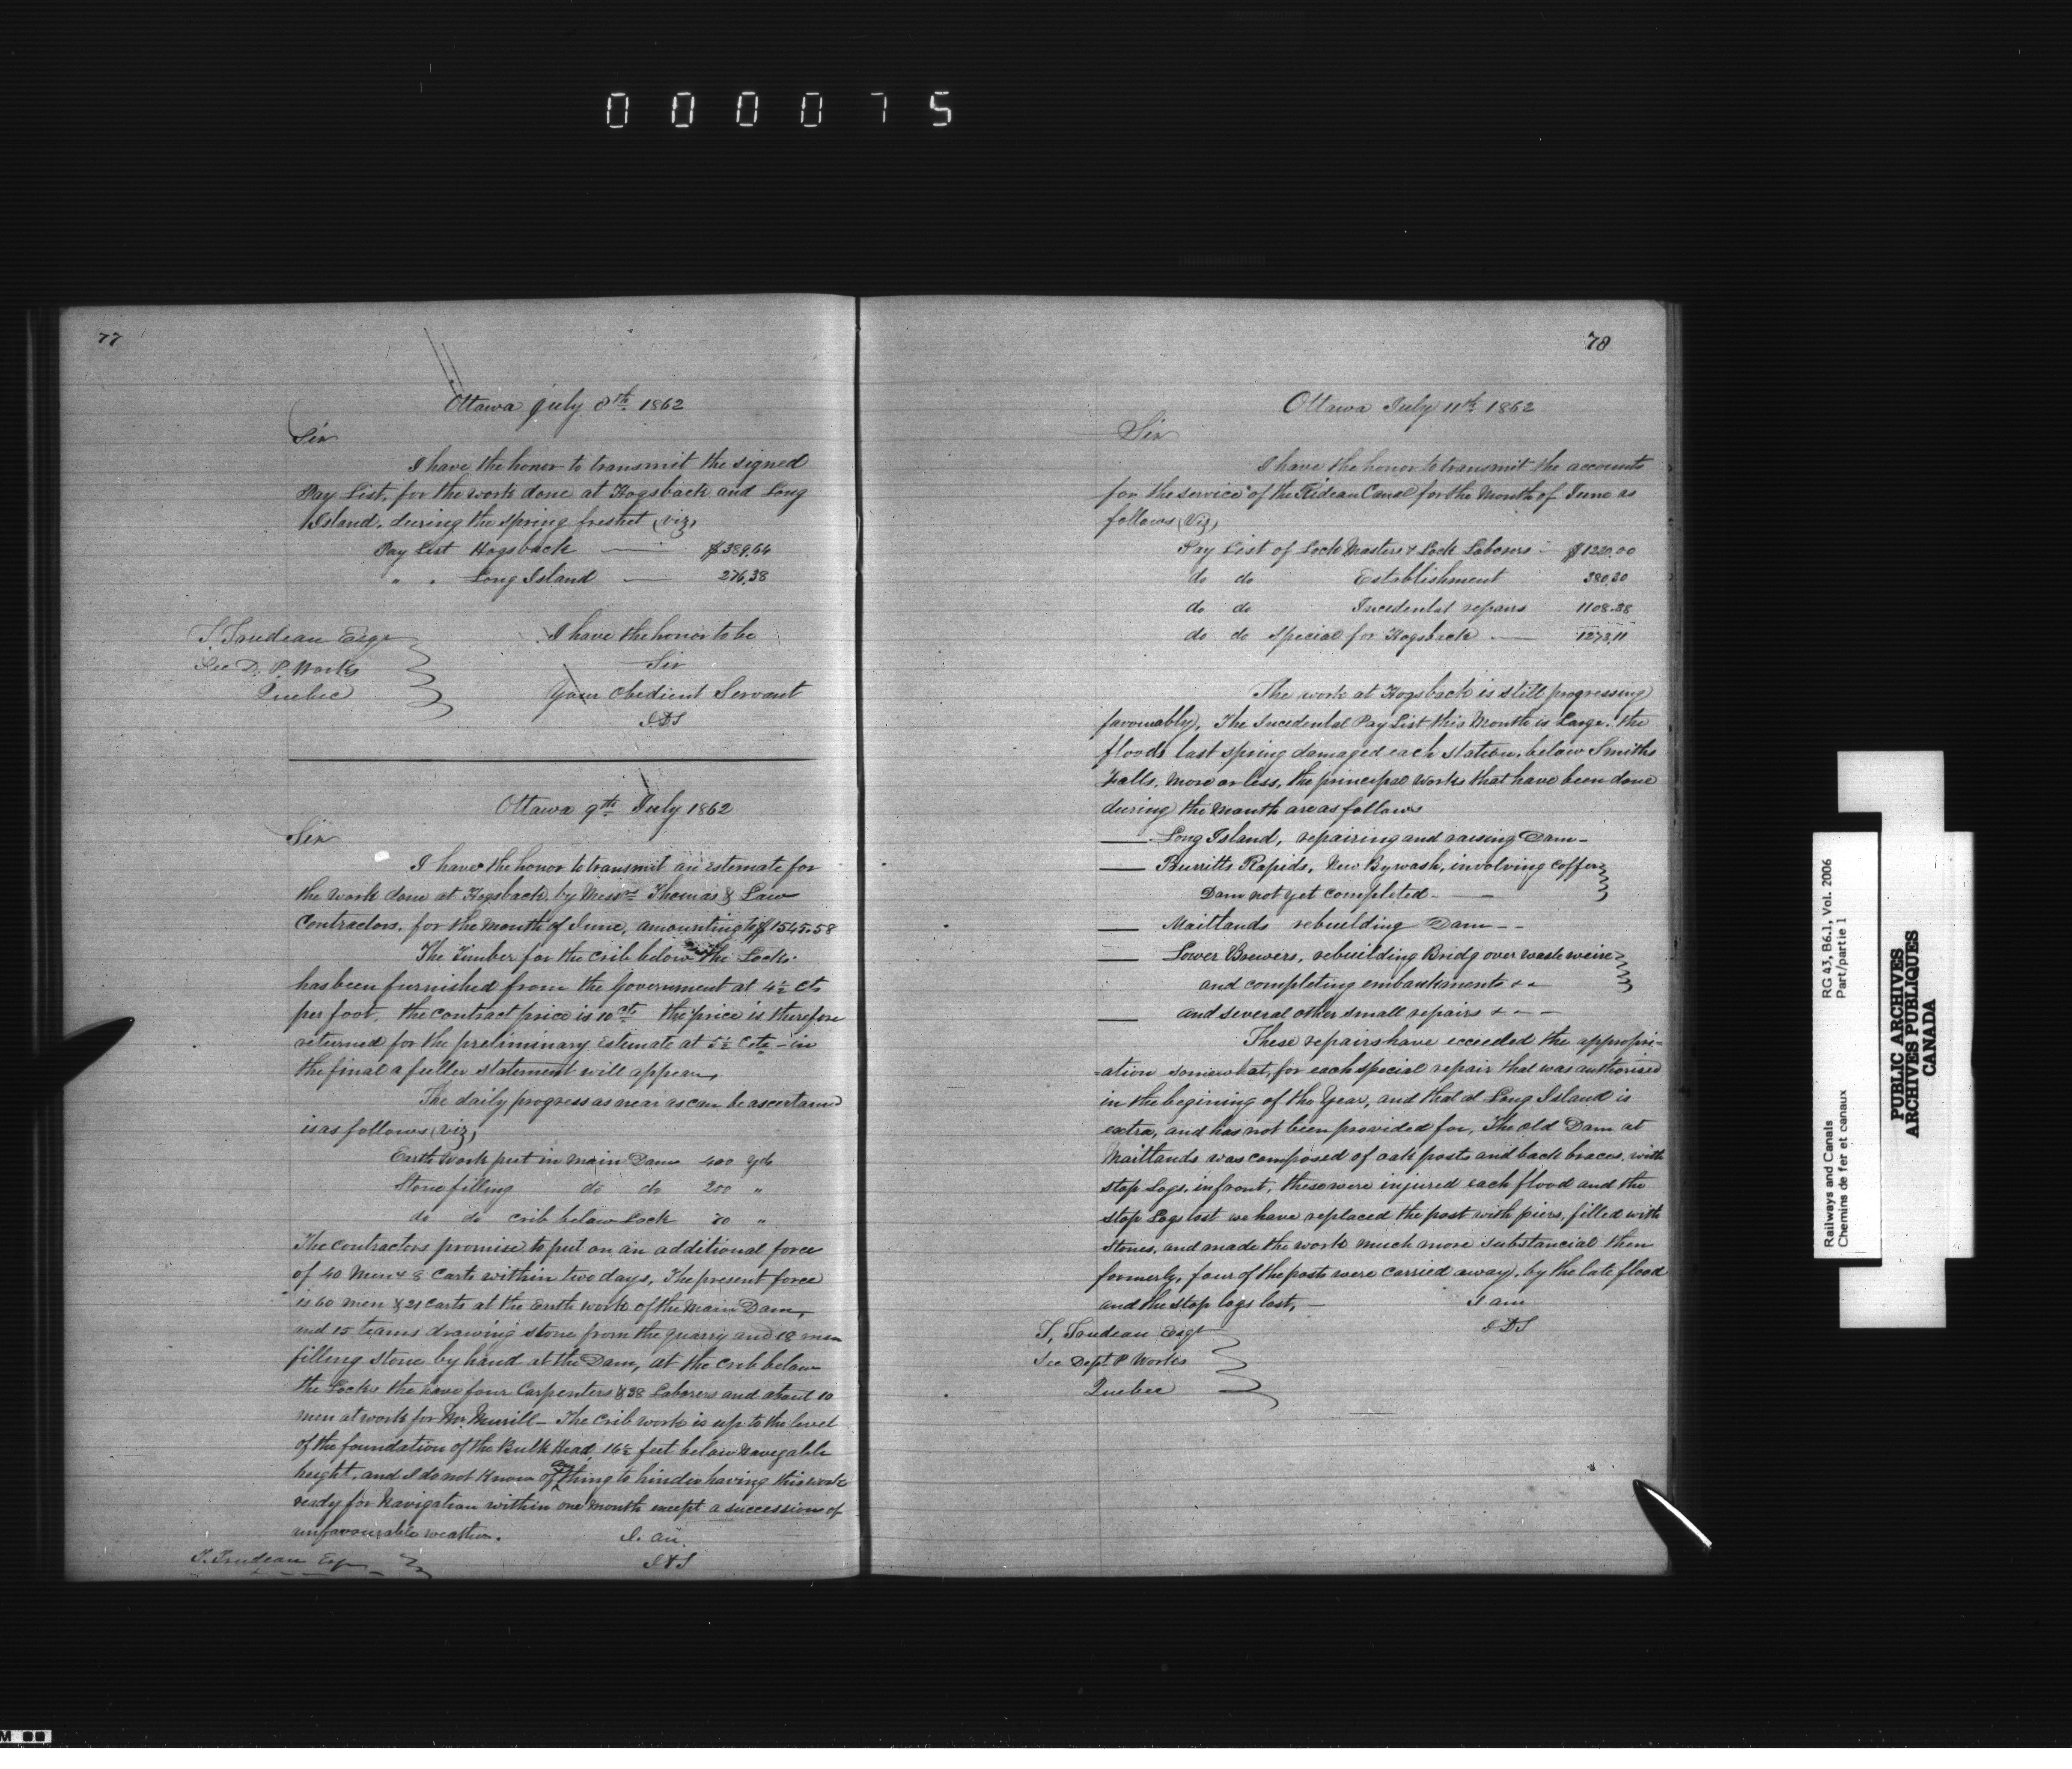 000075
77
Ottawa July 8th 1862
Sir
I have the honor to transmit the signed
Pay List, for the work done at Hogsback and Long
Island, during the spring freshet (viz,
Pay List Hogsback — $389.64
" " Long Island — 276.38
I have the honor to be
Sir
Your Obedient Servant
JDS
T. Trudeau Esqr
Sec D. P. Works
Quebec
Ottawa 9th July 1862
Sir
I have the honor to transmit an estemate for
the work done at Hogsback, by Messrs Thomas & Law
Contractors, for the Month of June, amounting to $1545.58
The Timber for the crib below the Locks.
has been furnished from the Government at 4½ Cts
per foot. the contract price is 10 cts the price is therefore
returned for the preliminary Estemate at 5½ Cets – in
the final a fuller statement will appear,
The daily progress as near as can be ascertained
is as follows (viz,
Earth work put in main Dam 400 yds
Stone filling do do 200 "
do do crib below Lock 70 "
The contractors promise to put on an additional force
of 40 Men & 8 Carts within two days, The present force
is 60 men & 21 carts at the Earth work of the Main Dam,
and 15 teams drawing stone from the quarry and 18 men
filling stone by hand at the Dam, at the crib below
the Locks the have four Carpenters & 38 Laborers and about 10
men at work for Mr Merrill – The crib work is up to the level
of the foundation of the Bulk Head, 16½ feet below Navegable
height, and I do not know of any thing to hinder having this work
ready for Navigation within one Month except a succession of
unfavourable weather.
I. am
JDS
T. Trudeau Esqr
78
Ottawa July 11th 1862
Sir
I have the honor to transmit the accounts
for the service of the Rideau Canal for the Month of June as
follows (Viz,
Pay List of Lock Masters & Lock Laborers – $1220.00
do do Establishment 380.20
do do Incedental repairs 1108.38
do do special for Hogsback — 1273.11
The work at Hogsback is still progressing
favourably, The Incedental Pay List this Month is Large. the
floods last spring damaged each station, below Smiths
Falls, more or less, the principal works that have been done
during the Month are as follows
— Long Island, repairing and raising Dam –
— Burritts Rapids, New Bywash, involving coffer
Dam not yet completed — —
— Maitlands rebuilding Dam – –
— Lower Brewers, rebuilding Bridg over waste weire
and completing embankments & &
— and several other small repairs & – –
These repairs have exceeded the appropri=
=ation somewhat, for each special repair that was authorised
in the begining of the Year, and that at Long Island is
extra, and has not been provided for, The old Dam at
Maitlands was composed of oak posts and back braces, with
stop Logs, infront, these were injured each flood and the
stop Logs lost we have replaced the post with piers, filled with
stones, and made the work much more substancial then
formerly, four of the posts were carried away, by the late flood
and the stop logs lost, —
I am
JDS
T. Trudeau Esqr
Sec Dept P Works
Quebec
RG 43, B6.1, Vol. 2006
Part/partie 1
Railways and Canals
Chemins de fer et canaux
PUBLIC ARCHIVES
ARCHIVES PUBLIQUES
CANADA